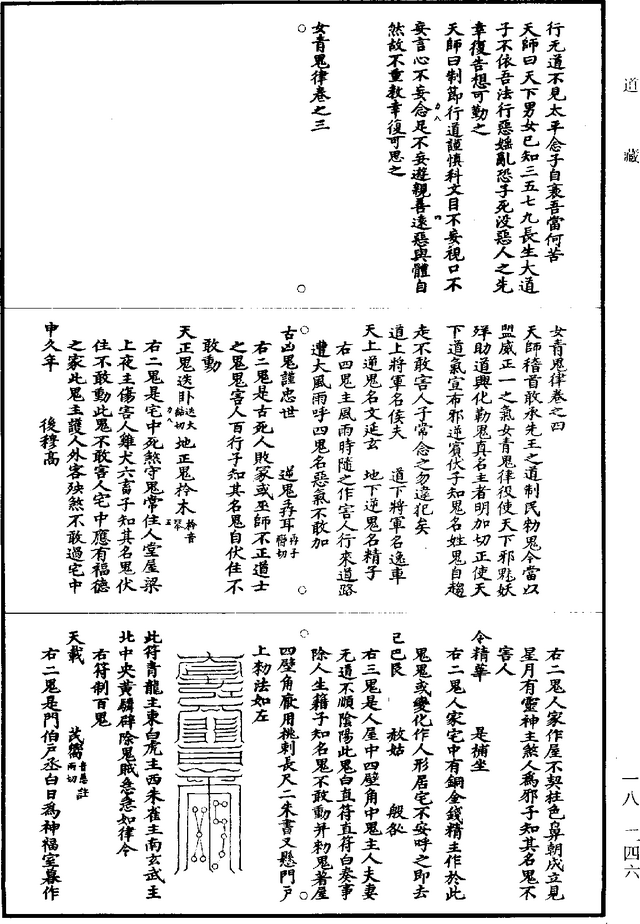 道藏
行无道不見太平念子自衷吾當何苦
天師曰天下男女已知三五七九長生大道
子不依吾法行惡婬亂恐子死没惡人之先
幸復告想可勤之
天師曰制節行道謹慎科文目不妄視口不
妄言心不妄念足不妄遊親善遠惡與體自
然故不重教幸復可思之
女青鬼律卷之三
女青鬼律卷之四
天師稽首敢承先王之道制民勑鬼今當以
盟威正一之氣女青鬼律役使天下邪魅妖
殃助道興化勒鬼真名主者明加切正使天
下道氣宣布邪逆賓伏子知鬼名姓鬼自趨
走不敢害人子常念之勿違犯矣
道上將軍名侯夫　道下將軍名逸車
天上逆鬼名文延玄　地下逆鬼名精子
右四鬼主風雨時隨之作害人行來道路
遭大風雨呼四鬼名惡氣不敢加
古凶鬼謹忠世　逆鬼孨耳
右二鬼是古死人敗冢或巫師不正道士
之鬼鬼害人百行子知其名鬼自伏住不
敢動
天正鬼迭卦　地正鬼柃木
右二鬼是宅中死煞守鬼常住人堂屋梁
上夜主傷害人雞犬六畜子知其名鬼伏
住不敢動此鬼不敢害人宅中應有福德
之家此鬼主護人外客殃煞不敢過宅中
申久年　後穆高
右二鬼人家作屋不契柱邑鼻朝成立見
星月有靈神主煞人爲邪子知其名鬼不
害人
令精華　是補坐
右二鬼人家宅中有銅金錢精主作於此
鬼鬼或變化作人形居宅不安呼之即去
己巳艮　赦姑　般欲
右三鬼是人屋中四壁角中鬼主人夫妻
无道不順陰陽此鬼白直符直符白奏事
除人生籍子知名鬼不敢動并勑鬼著屋
四壁角廠用桃刺長尺二朱書又懸門戶
上勑法如左
此符青龍主東白虎主西朱雀主南玄武主
北中央黃驎辟除鬼賊急急如律令
右符制百鬼
天載　茂鄩
右二鬼是門伯戶丞白日爲神福室暮作
一八-二四六